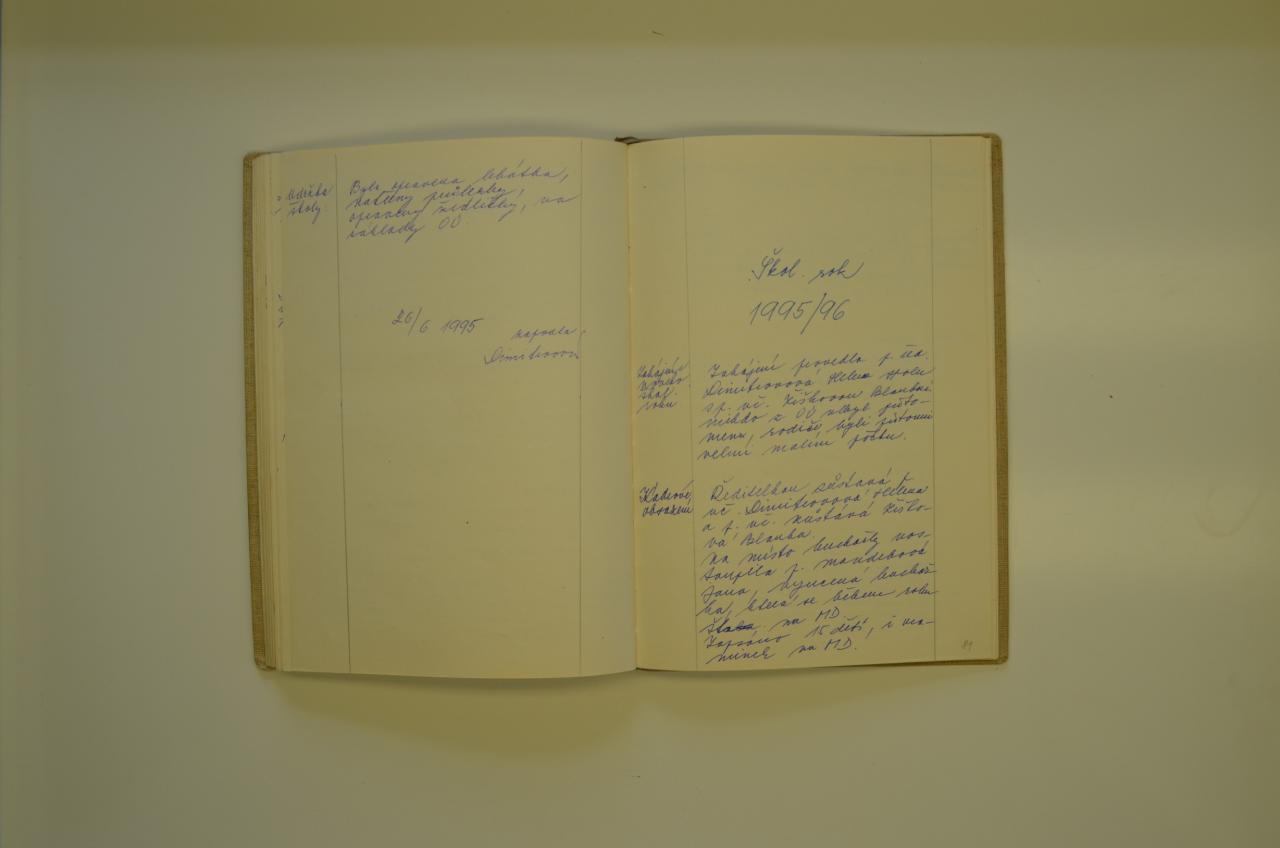 Údržba
školy.
Byla opravena lehátka,
natřeny průlezky,
opraveny židličky, na
náklady OÚ.
26/6 1995
zapsala
Dimitrovová
Škol. rok
1995/96
Zahájení
škol.
roku
Zahájení provedla p. řed.
Dimitrovová Helena
sp. uč. Kiškovou Blankou
nikdo z OÚ nebyl příto-
men, rodiče byli přítomni
velmi malém počtu.
Kádrové
obsazení
Ředitelkou zůstává p.
uč. Dimitrovová Helena
a p. uč. zůstává Kiško-
vá Blanka.
Na místo kuchařky nas-
toupila p. Mandeková
Jana, vyučená kuchař-
ka, která je během roku
na MD.
Zapsáno 15 dětí, i ma-
minek na MD.